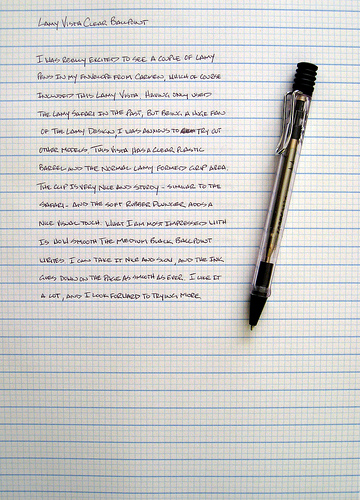 LAMY VISTA CLEAR BALLPOINT
I WAS REALLY EXCITED TO SEE A COUPLE OF LAMY
PENS IN MY ENVELOPE FROM CARMEN, WHICH OF COURSE
INCLUDED THIS LAMY VISTA. HAVING ONLY USED
THE LAMY SAFARI IN THE PAST, BUT BEING A HUGE FAN
OF THE LAMY DESIGN, I WAS ANXIOUS TO TRY OUT
OTHER MODELS. THIS VISTA HAS A CLEAR PLASTIC
BARREL AND THE NORMAL LAMY FORMED GRIP AREA.
THE CLIP IS VERY NICE AND STURDY - SIMILAR TO THE
SAFARI - AND THE SOFT RUBBER PLUNGER ADDS A
NICE VISUAL TOUCH. WHAT I AM MOST IMPRESSED WITH
IS HOW SMOOTH THE MEDIUM BLACK BALLPOINT
WRITES. I CAN TAKE IT NICE AND SLOW, AND THE INK
GOES DOWN ON THE PAGE AS SMOOTH AS EVER. I LIKE IT
A LOT, AND I LOOK FORWARD TO TRYING MORE.